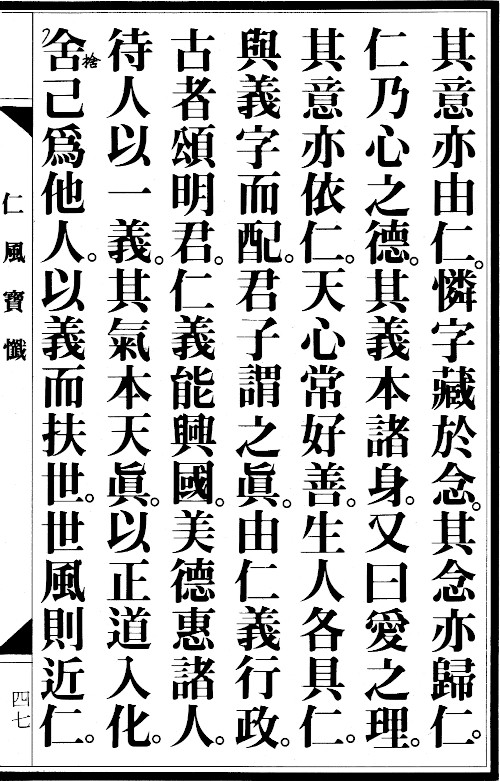 其意亦由仁。憐字藏於念。其念亦歸仁。
仁乃心之德。其義本諸身。又曰愛之理。
其意亦依仁。天心常好善。生人各具仁。
與義字而配。君子謂之眞。由仁義行政。
古者頌明君。仁義能興國。美德惠諸人。
待人以一義。其氣本天眞。以正道入化。
舍捨己爲他人。以義而扶世。世風則近仁。
仁風寶懺
四七